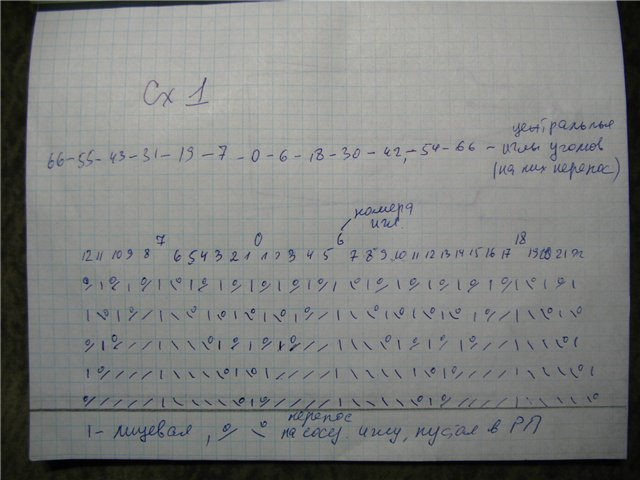 Сх 1
66-55-43-31-19-7-0-6-18-30-42-54-66 - центральные
иглы уголов
(на них перенос)
номера
игл.
7 0 6 18
12 11 10 9 8 6 5 4 3 2 1 1 2 3 4 5 7 8 9 10 11 12 13 14 15 16 17 19 20 21 22
1 - лицевая, перенос
на сосед. иглу, пустая в РП